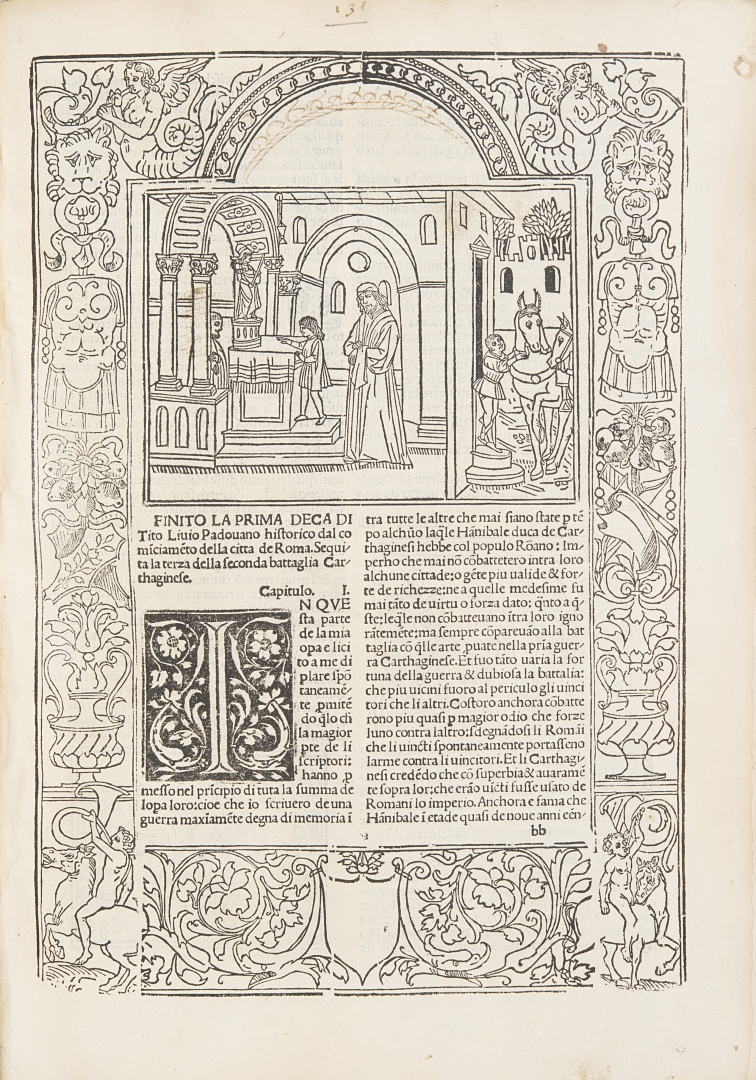 131
FINITO LA PRIMA DECA DI
Tito Liuio Padouano historico dal co
mīciamēto della citta de Roma. Sequi
ta la terza della seconda battaglia Car-
thaginese.
Capitulo. I.
N QVE
sta parte
de la mia
opa e lici
to a me di
plare spō
taneamē-
te ꝓmitē
do q̄lo ch̄
la magior
pte de li
scriptori:
hanno ꝓ
messo nel prīcipio di tuta la summa de
lopa loro: cioe che io scriuero de una
guerra maxīamēte degna di memoria ī
tra tutte le altre che mai siano state p tē
po alchūo laq̄le Hānibale duca de Car-
thaginesi hebbe col populo Rōano: Im-
perho che mai nō cōbattetero intra loro
alchune cittade: o gēte piu ualide & for-
te de richezze: ne a quelle medesime fu
mai tāto de uirtu o forza dato: q̄nto a q̄-
ste: leq̄le non cōbatteuano ītra loro igno
rātemēte: ma sempre cōpareuāo alla bat
taglia cō q̄lle arte ꝓuate nella pria guer-
ra Carthaginese. Et fuo tāto uaria la for
tuna della guerra & dubiosa la battalia:
che piu uicini fuoro al periculo gli uinci
tori che li altri. Costoro anchora cōbatte
rono piu quasi p magior odio che forze
luno contra laltro: sdegnādosi li Romāi
che li uincti spontaneamente portasseno
larme contra li uincitori. Et li Carthagi-
nesi credēdo che cō superbia & auaramē
te sopra lor: che erāo uīcti fusse usato de
Romani lo imperio. Anchora e fama che
Hānibale ī etade quasi de noue anni eēn-
bb